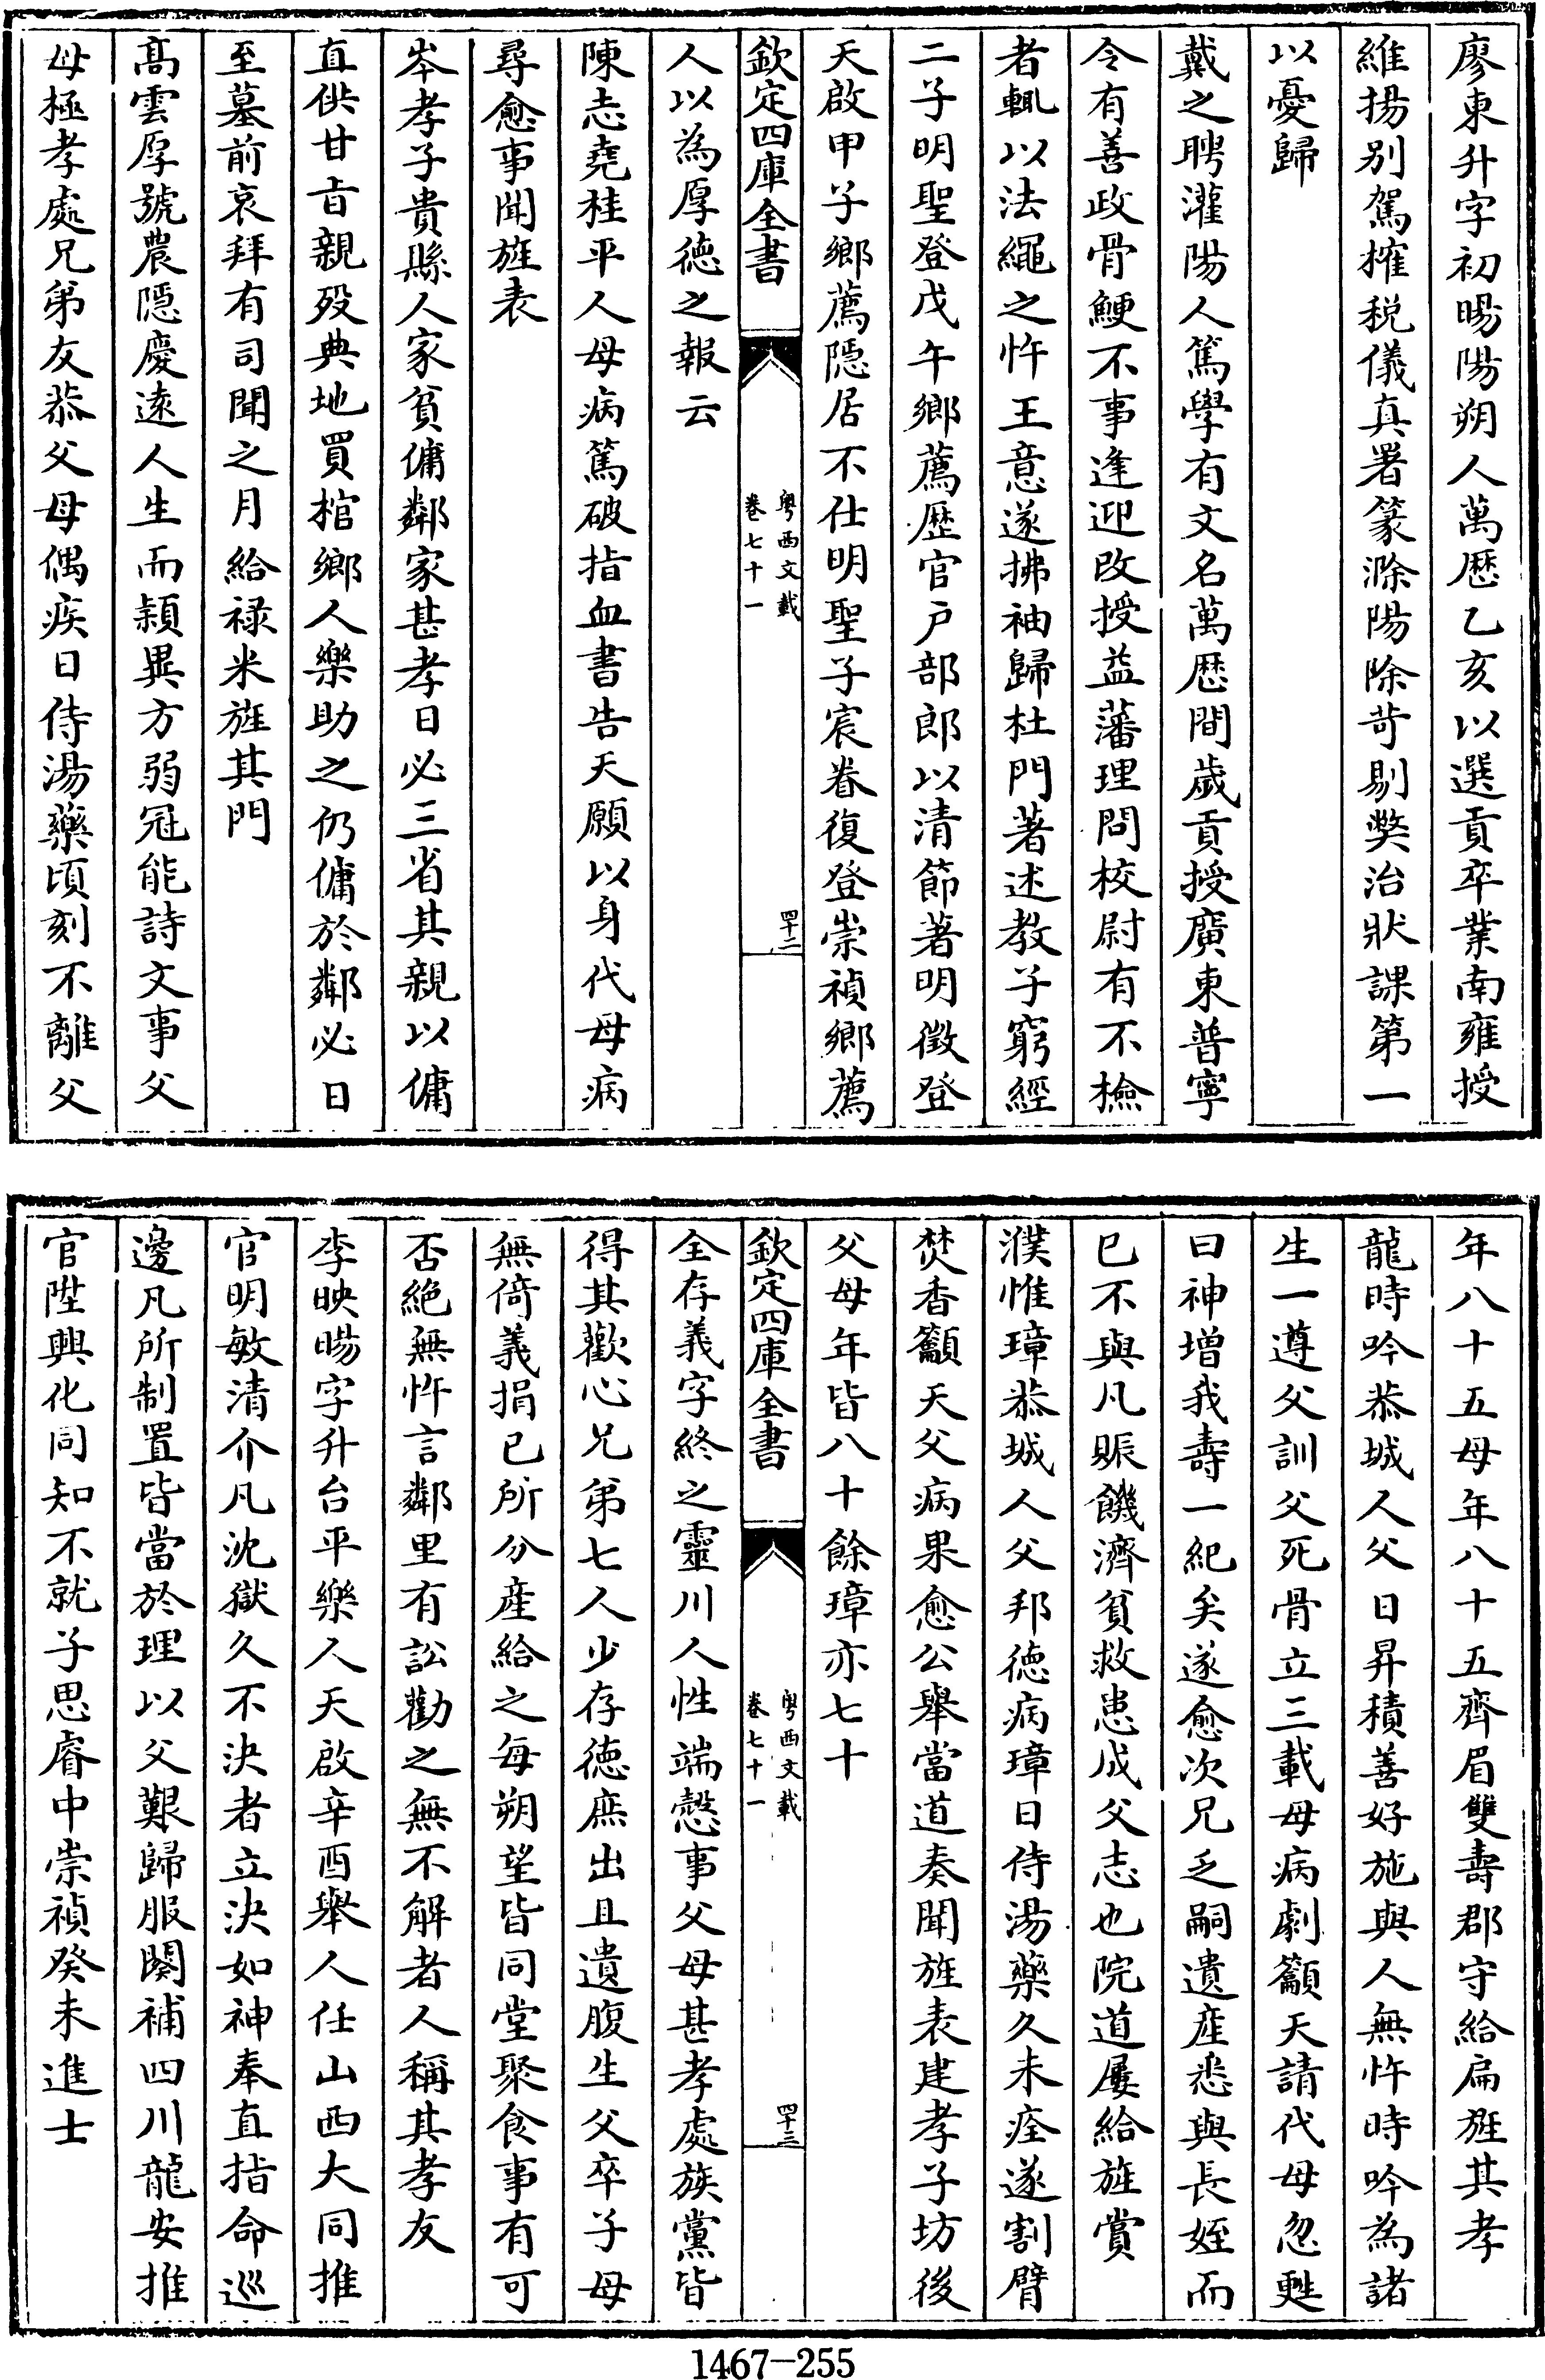 廖東升字初暘陽朔人萬歴乙亥以選貢卒業南雍授
維揚别駕㩁税儀真署篆滁陽除苛剔獘治狀課第一
以憂歸
戴之聘灌陽人篤學有文名萬歴間歲貢授廣東普寧
令有善政骨鯁不事逢迎改授益藩理問校尉有不檢
者輒以法繩之忤王意遂拂袖歸杜門著述教子窮經
二子明聖登戊午鄉薦歴官户部郎以清節著明徵登
天啟甲子鄉薦隠居不仕明聖子宸眷復登崇禎鄉薦
欽定四庫全書
粤西文載
卷七十一
四十二
人以為厚徳之報云
陳志堯桂平人母病篤破指血書告天願以身代母病
尋愈事聞旌表
岑孝子貴縣人家貧傭鄰家甚孝日必三省其親以傭
直供甘㫖親殁典地買棺鄉人樂助之仍傭於鄰必日
至墓前哀拜有司聞之月給禄米旌其門
髙雲厚號農隠慶逺人生而頴異方弱冠能詩文事父
母極孝處兄弟友恭父母偶疾日侍湯藥頃刻不離父
年八十五母年八十五齊眉雙壽郡守給扁旌其孝
龍時吟恭城人父日昇積善好施與人無忤時吟為諸
生一遵父訓父死骨立三載母病劇籲天請代母忽甦
曰神增我壽一紀矣遂愈次兄乏嗣遺産悉與長姪而
已不與凡賑饑濟貧救患成父志也院道屢給旌賞
濮惟璋恭城人父邦徳病璋日侍湯藥久未痊遂割臂
焚香籲天父病果愈公舉當道奏聞旌表建孝子坊後
父母年皆八十餘璋亦七十
欽定四庫全書
粤西文載
卷七十一
四十三
全存義字終之靈川人性端慤事父母甚孝處族黨皆
得其歡心兄弟七人少存徳庶出且遺腹生父卒子母
無倚義捐已所分産給之每朔望皆同堂聚食事有可
否絶無忤言鄰里有訟勸之無不解者人稱其孝友
李映暘字升台平樂人天啟辛酉舉人任山西大同推
官明敏清介凡沈獄久不決者立決如神奉直指命巡
邊凡所制置皆當於理以父艱歸服闋補四川龍安推
官陞興化同知不就子思睿中崇禎癸未進士
1467-255